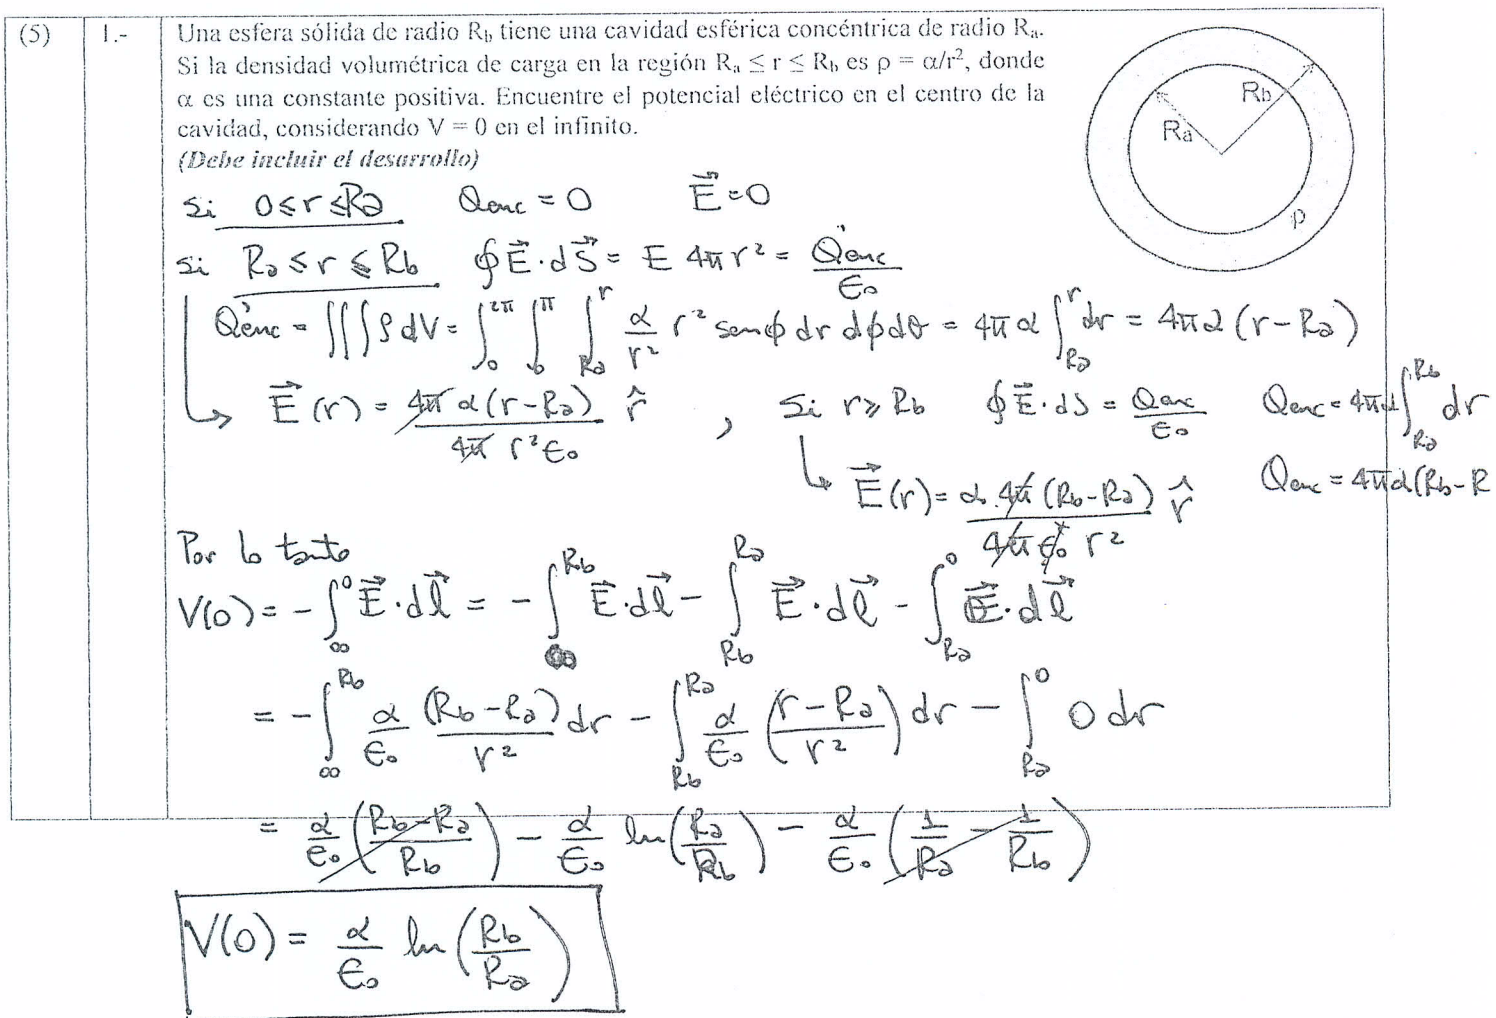 (5) 1.- Una esfera sólida de radio R_b tiene una cavidad esférica concéntrica de radio R_a.
Si la densidad volumétrica de carga en la región R_a ≤ r ≤ R_b es ρ = α/r², donde
α es una constante positiva. Encuentre el potencial eléctrico en el centro de la
cavidad, considerando V = 0 en el infinito.
(Debe incluir el desarrollo)
Rb
Ra
ρ
Si 0≤r≤Ra Qenc = 0 E⃗=0
si Ra ≤ r ≤ Rb ∮E⃗·dS⃗ = E 4π r² = Q'enc/ε₀
Q'enc = ∭ρ dV = ∫₀^2π ∫₀^π ∫_Ra^r α/r² r² senϕ dr dϕ dθ = 4π α ∫_Ra^r dr = 4πα (r-Ra)
↳ E⃗(r) = 4π α(r-Ra)/(4π r² ε₀) r̂ , Si r≥Rb ∮E⃗·dS = Qenc/ε₀ Qenc = 4πα∫_Ra^Rb dr
↳ E⃗(r) = α 4π (Rb-Ra)/(4π ε₀ r²) r̂ Qenc = 4πα(Rb-R
Por lo tanto
V(0) = -∫_∞^0 E⃗·dl⃗ = -∫_∞^Rb E⃗·dl⃗ - ∫_Rb^Ra E⃗·dl⃗ - ∫_Ra^0 E⃗·dl⃗
= -∫_∞^Rb α/ε₀ (Rb-Ra)/r² dr - ∫_Rb^Ra α/ε₀ ((r-Ra)/r²) dr - ∫_Ra^0 0 dr
= α/ε₀ ((Rb-Ra)/Rb) - α/ε₀ ln(Ra/Rb) - α/ε₀ (1/Ra - 1/Rb)
V(0) = α/ε₀ ln(Rb/Ra)